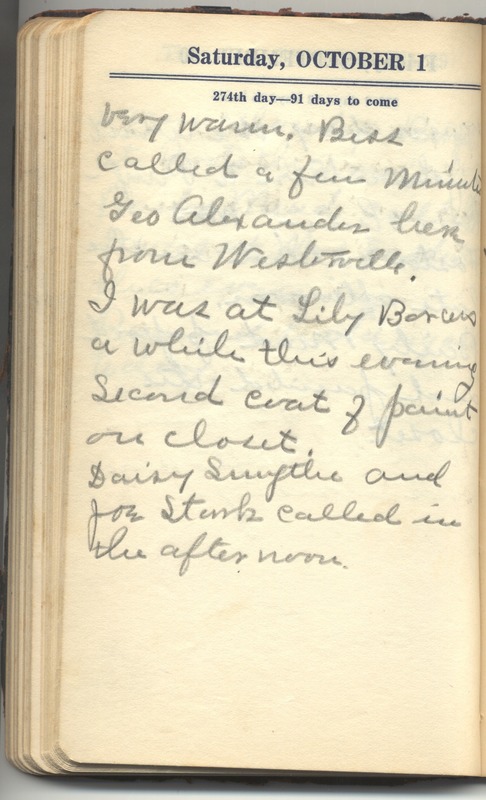 Saturday, OCTOBER 1
274th day—91 days to come
Very warm. Bess
called a few minute
Geo Alexander here
from Westerville.
I was at Lily
a while this evening
Second coat of paint
on closet.
Daisy Smythe and
Joe Stark called in
the afternoon.